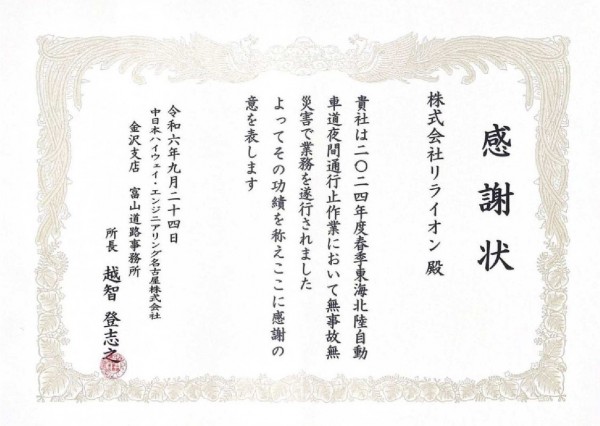 感謝状
株式会社リライオン 殿
貴社は二〇二四年度春季東海北陸自動
車道夜間通行止作業において無事故無
災害で業務を遂行されました
よってその功績を称えここに感謝の
意を表します
令和六年九月二十四日
中日本ハイウェイ・エンジニアリング名古屋株式会社
金沢支店 富山道路事務所
所長 越智 登志之